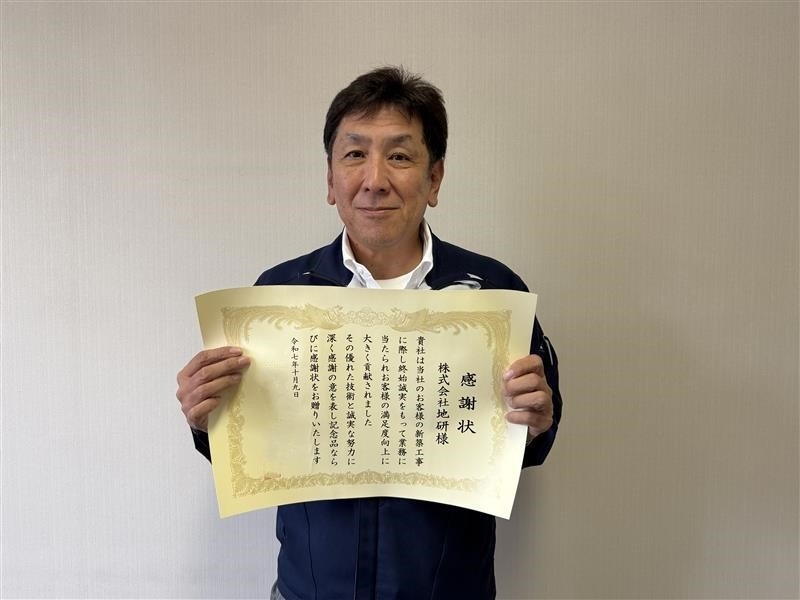 感謝状
株式会社地研様
貴社は当社のお客様の新築工事
に際し終始誠実をもって業務に
当たられお客様の満足度向上に
大きく貢献されました
その優れた技術と誠実な努力に
深く感謝の意を表し記念品なら
びに感謝状をお贈りいたします
令和七年十月九日